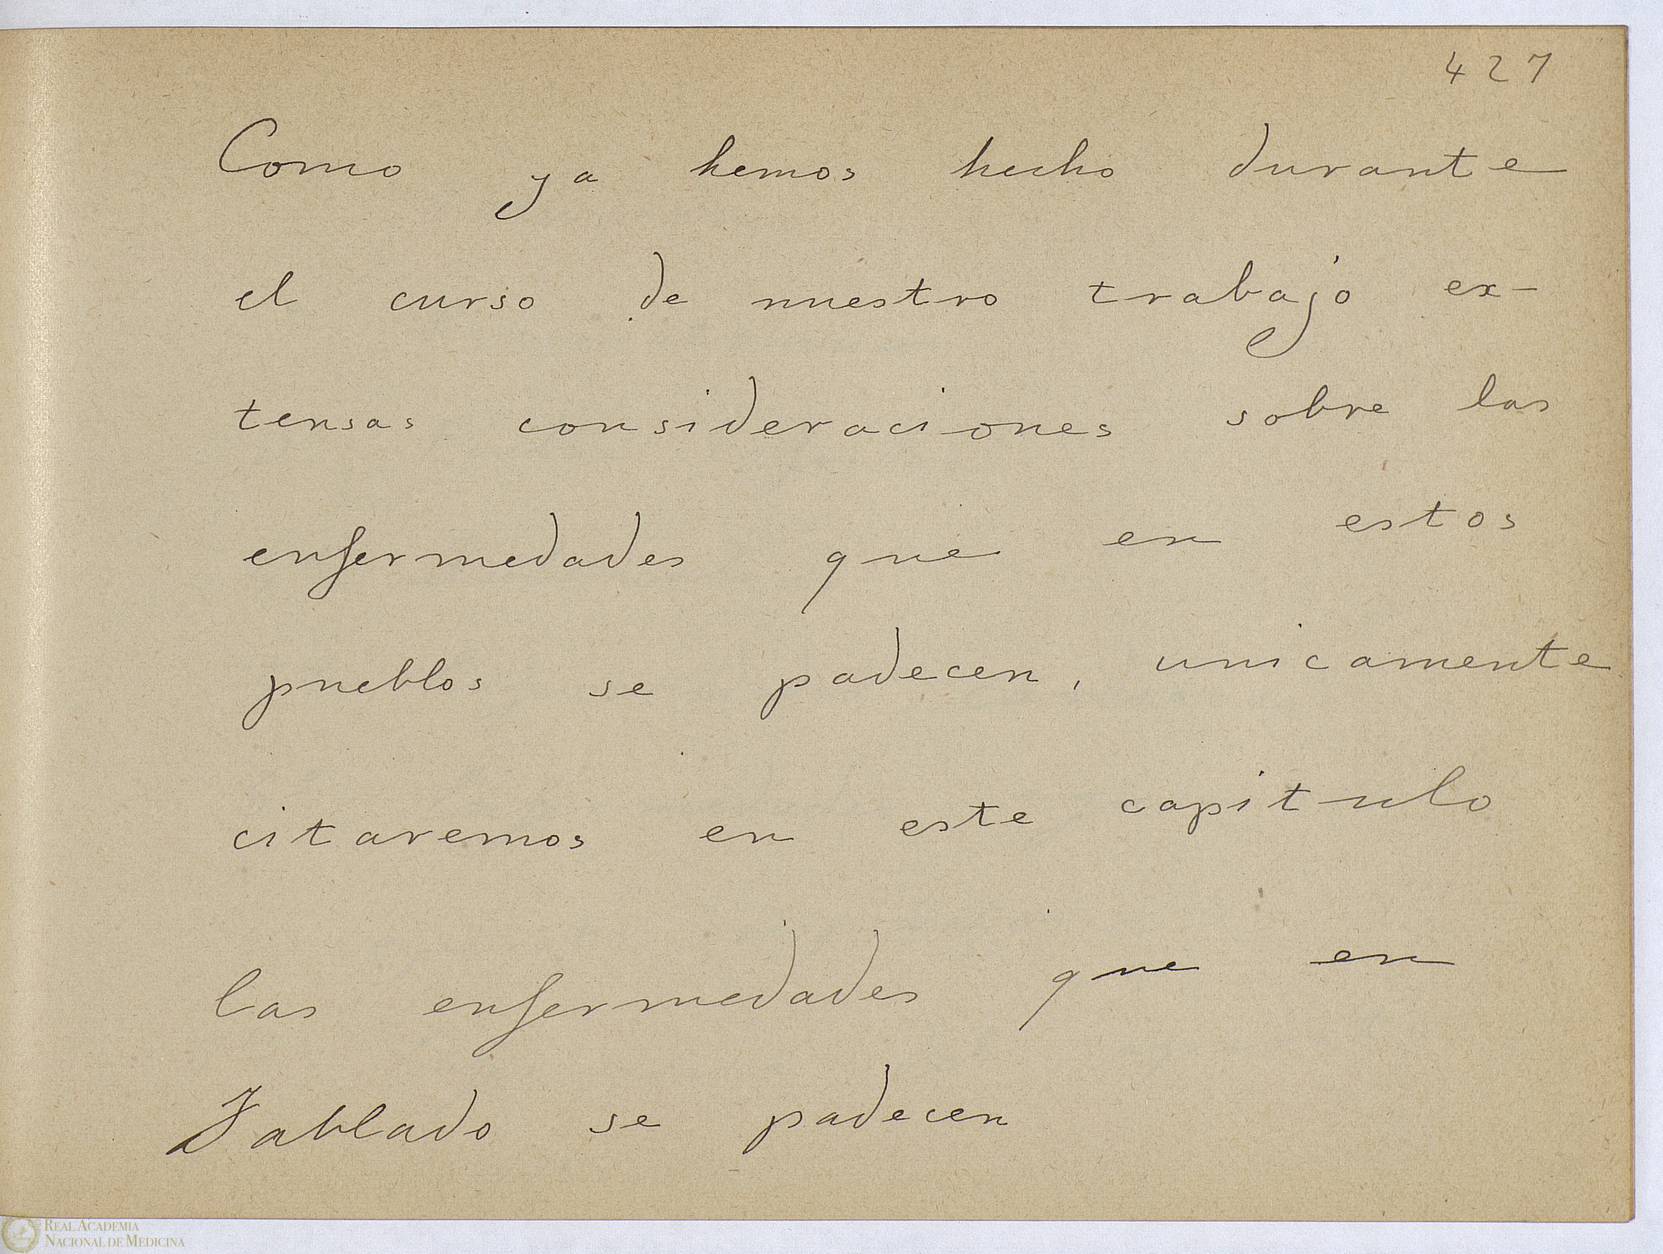 427
Como ya hemos hecho durante
el curso de nuestro trabajo ex-
tensas consideraciones sobre las
enfermedades que en estos
pueblos se padecen, unicamente
citaremos en este capitulo
las enfermedades que en
Tablado se padecen
REAL ACADEMIA
NACIONAL DE MEDICINA